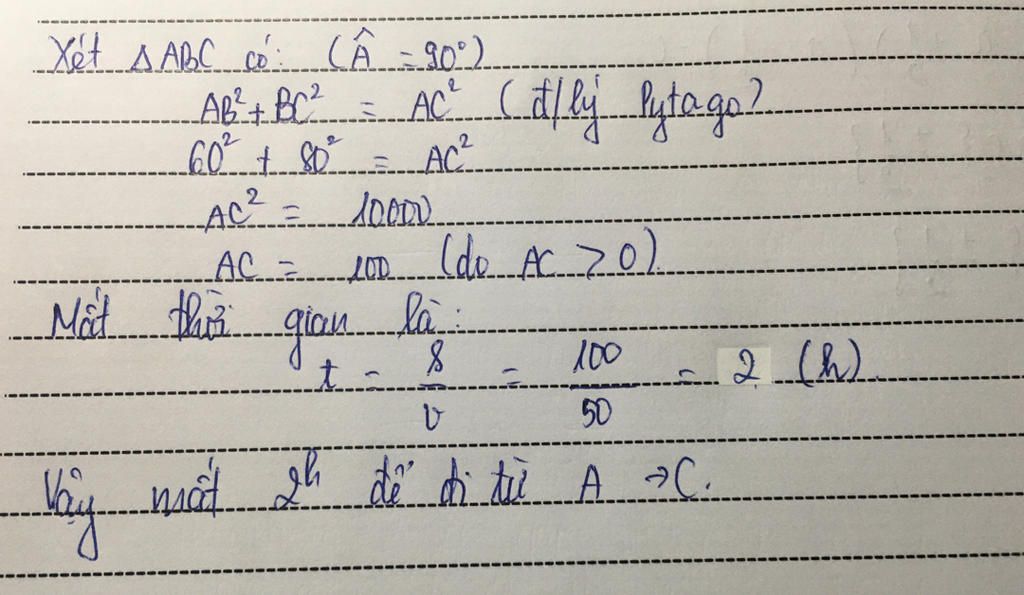 Xét ΔABC có: (Â = 90°)
AB² + BC² = AC² (đ/lý Pytago)
60² + 80² = AC²
AC² = 10000
AC = 100 (do AC > 0).
Mất thời gian là:
t = s/v = 100/50 = 2 (h).
Vậy mất 2h để đi từ A → C.